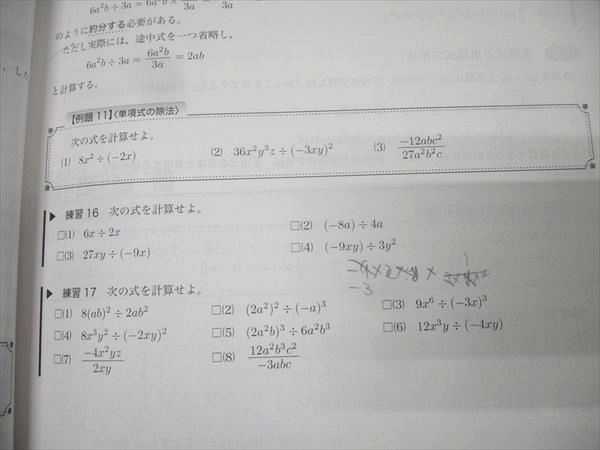 6a²b ÷ 3a = 6a²b ×
3a
3a
のように約分する必要がある。
ただし実際には，途中式を一つ省略し，
6a²b ÷ 3a = 6a²b/3a = 2ab
と計算する。
【例題 11】〈単項式の除法〉
次の式を計算せよ。
(1) 8x² ÷ (−2x) (2) 36x²y³z ÷ (−3xy)² (3) −12abc²/27a²b²c
▶ 練習 16 次の式を計算せよ。
□(1) 6x ÷ 2x □(2) (−8a) ÷ 4a
□(3) 27xy ÷ (−9x) □(4) (−9xy) ÷ 3y²
−3
▶ 練習 17 次の式を計算せよ。
□(1) 8(ab)² ÷ 2ab² □(2) (2a²)² ÷ (−a)³ □(3) 9x⁶ ÷ (−3x)³
□(4) 8x³y² ÷ (−2xy)² □(5) (2a²b)³ ÷ 6a²b³ □(6) 12x³y ÷ (−4xy)
□(7) −4x²yz/2xy □(8) 12a²b³c²/−3abc